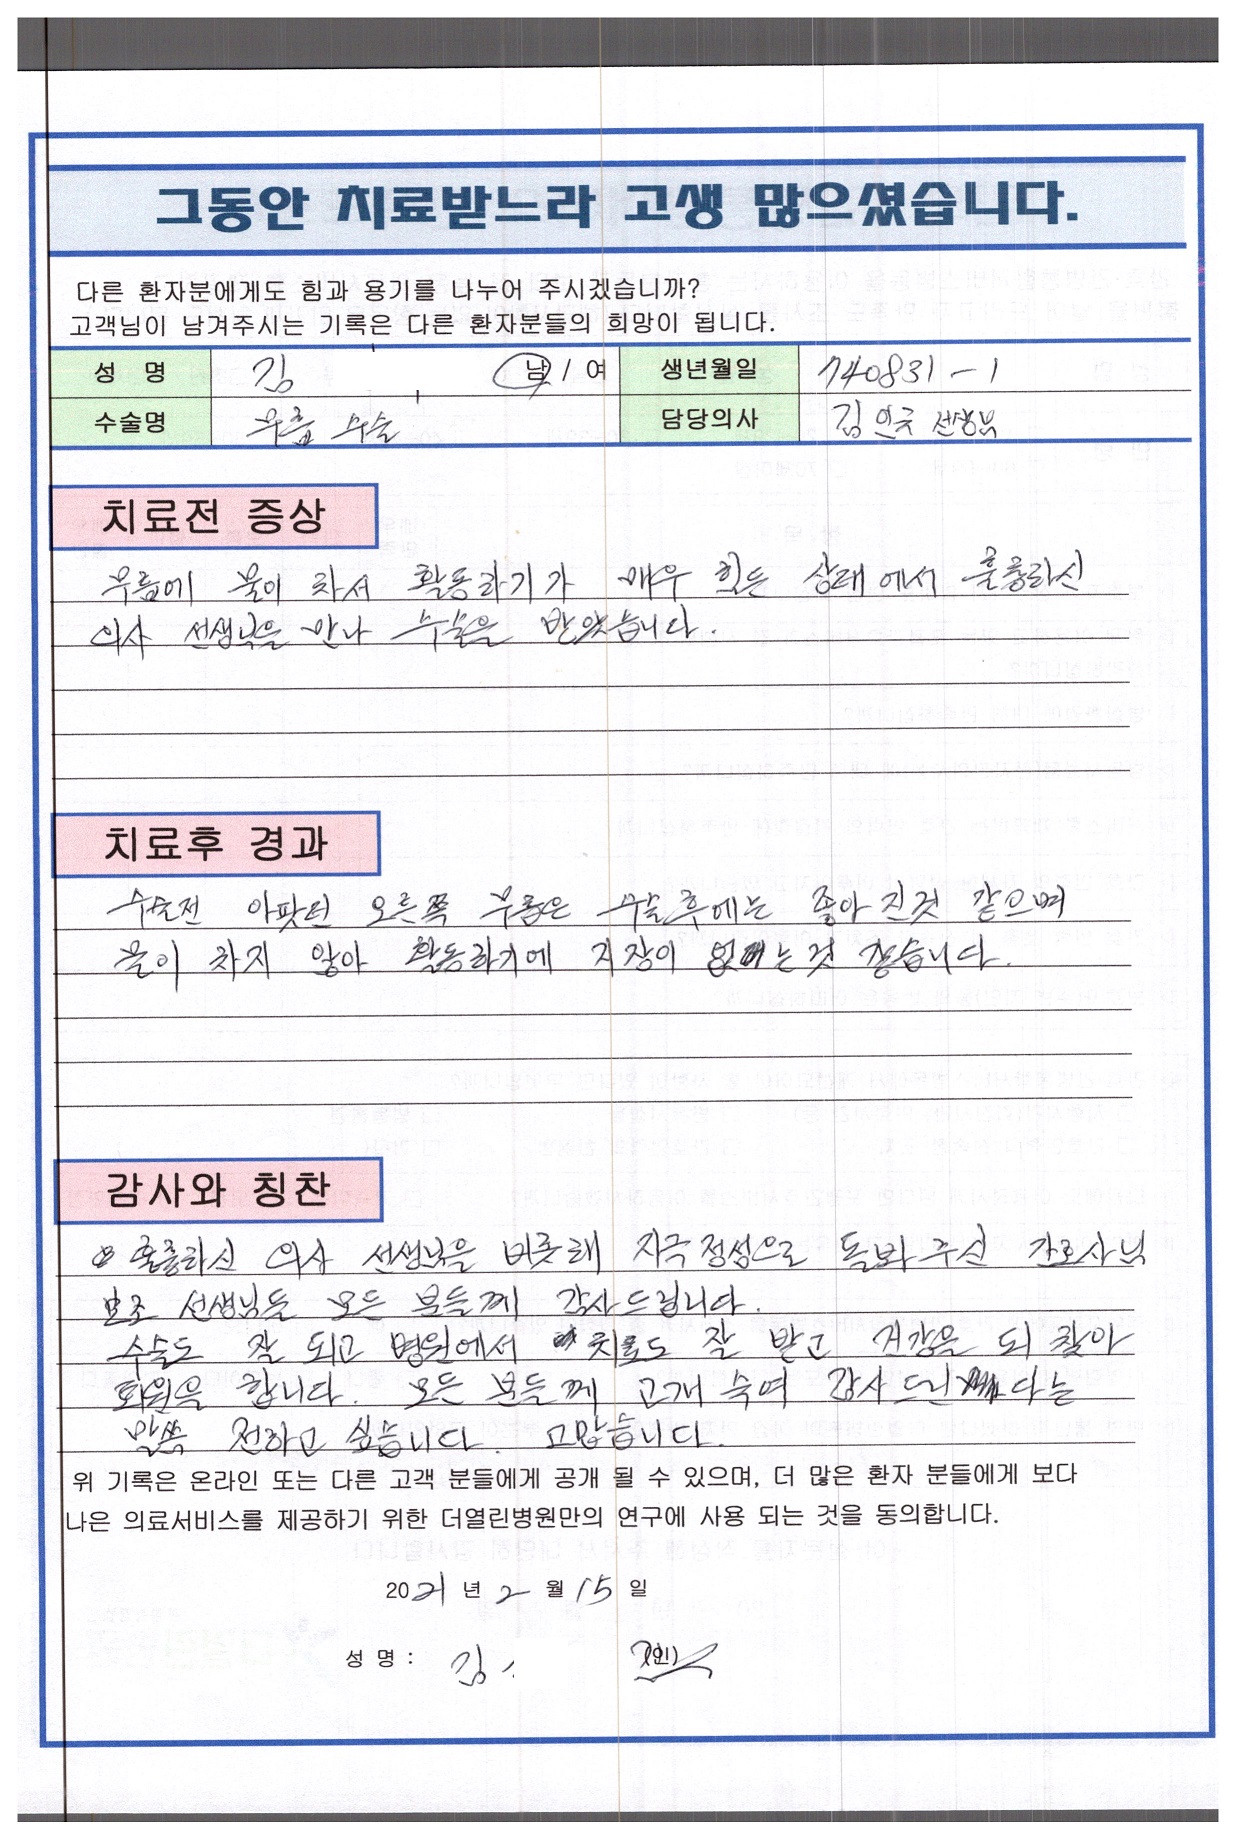 그동안 치료받느라 고생 많으셨습니다.
다른 환자분에게도 힘과 용기를 나누어 주시겠습니까?
고객님이 남겨주시는 기록은 다른 환자분들의 희망이 됩니다.
성 명 김 남 / 여 생년월일 740831-1
수술명 무릎 수술 담당의사 김 선생님
치료전 증상
무릎에 물이 차서 활동하기가 매우 힘든 상태에서 훌륭하신
의사 선생님을 만나 수술을 받았습니다.
치료후 경과
수술전 아팟던 오른쪽 무릎은 수술후에는 좋아진것 같으며
물이 차지 않아 활동하기에 지장이 없는것 같습니다.
감사와 칭찬
훌륭하신 의사 선생님을 비롯해 지극정성으로 돌봐주신 간호사님
보조 선생님등 모든 분들께 감사드립니다.
수술도 잘 되고 병원에서 치료도 잘 받고 건강을 되찾아
퇴원을 합니다. 모든 분들께 고개숙여 감사드린다는
말씀 전하고 싶습니다. 고맙습니다.
위 기록은 온라인 또는 다른 고객 분들에게 공개 될 수 있으며, 더 많은 환자 분들에게 보다
나은 의료서비스를 제공하기 위한 더열린병원만의 연구에 사용 되는 것을 동의합니다.
2021 년 2 월 15 일
성 명 : 김 (인)